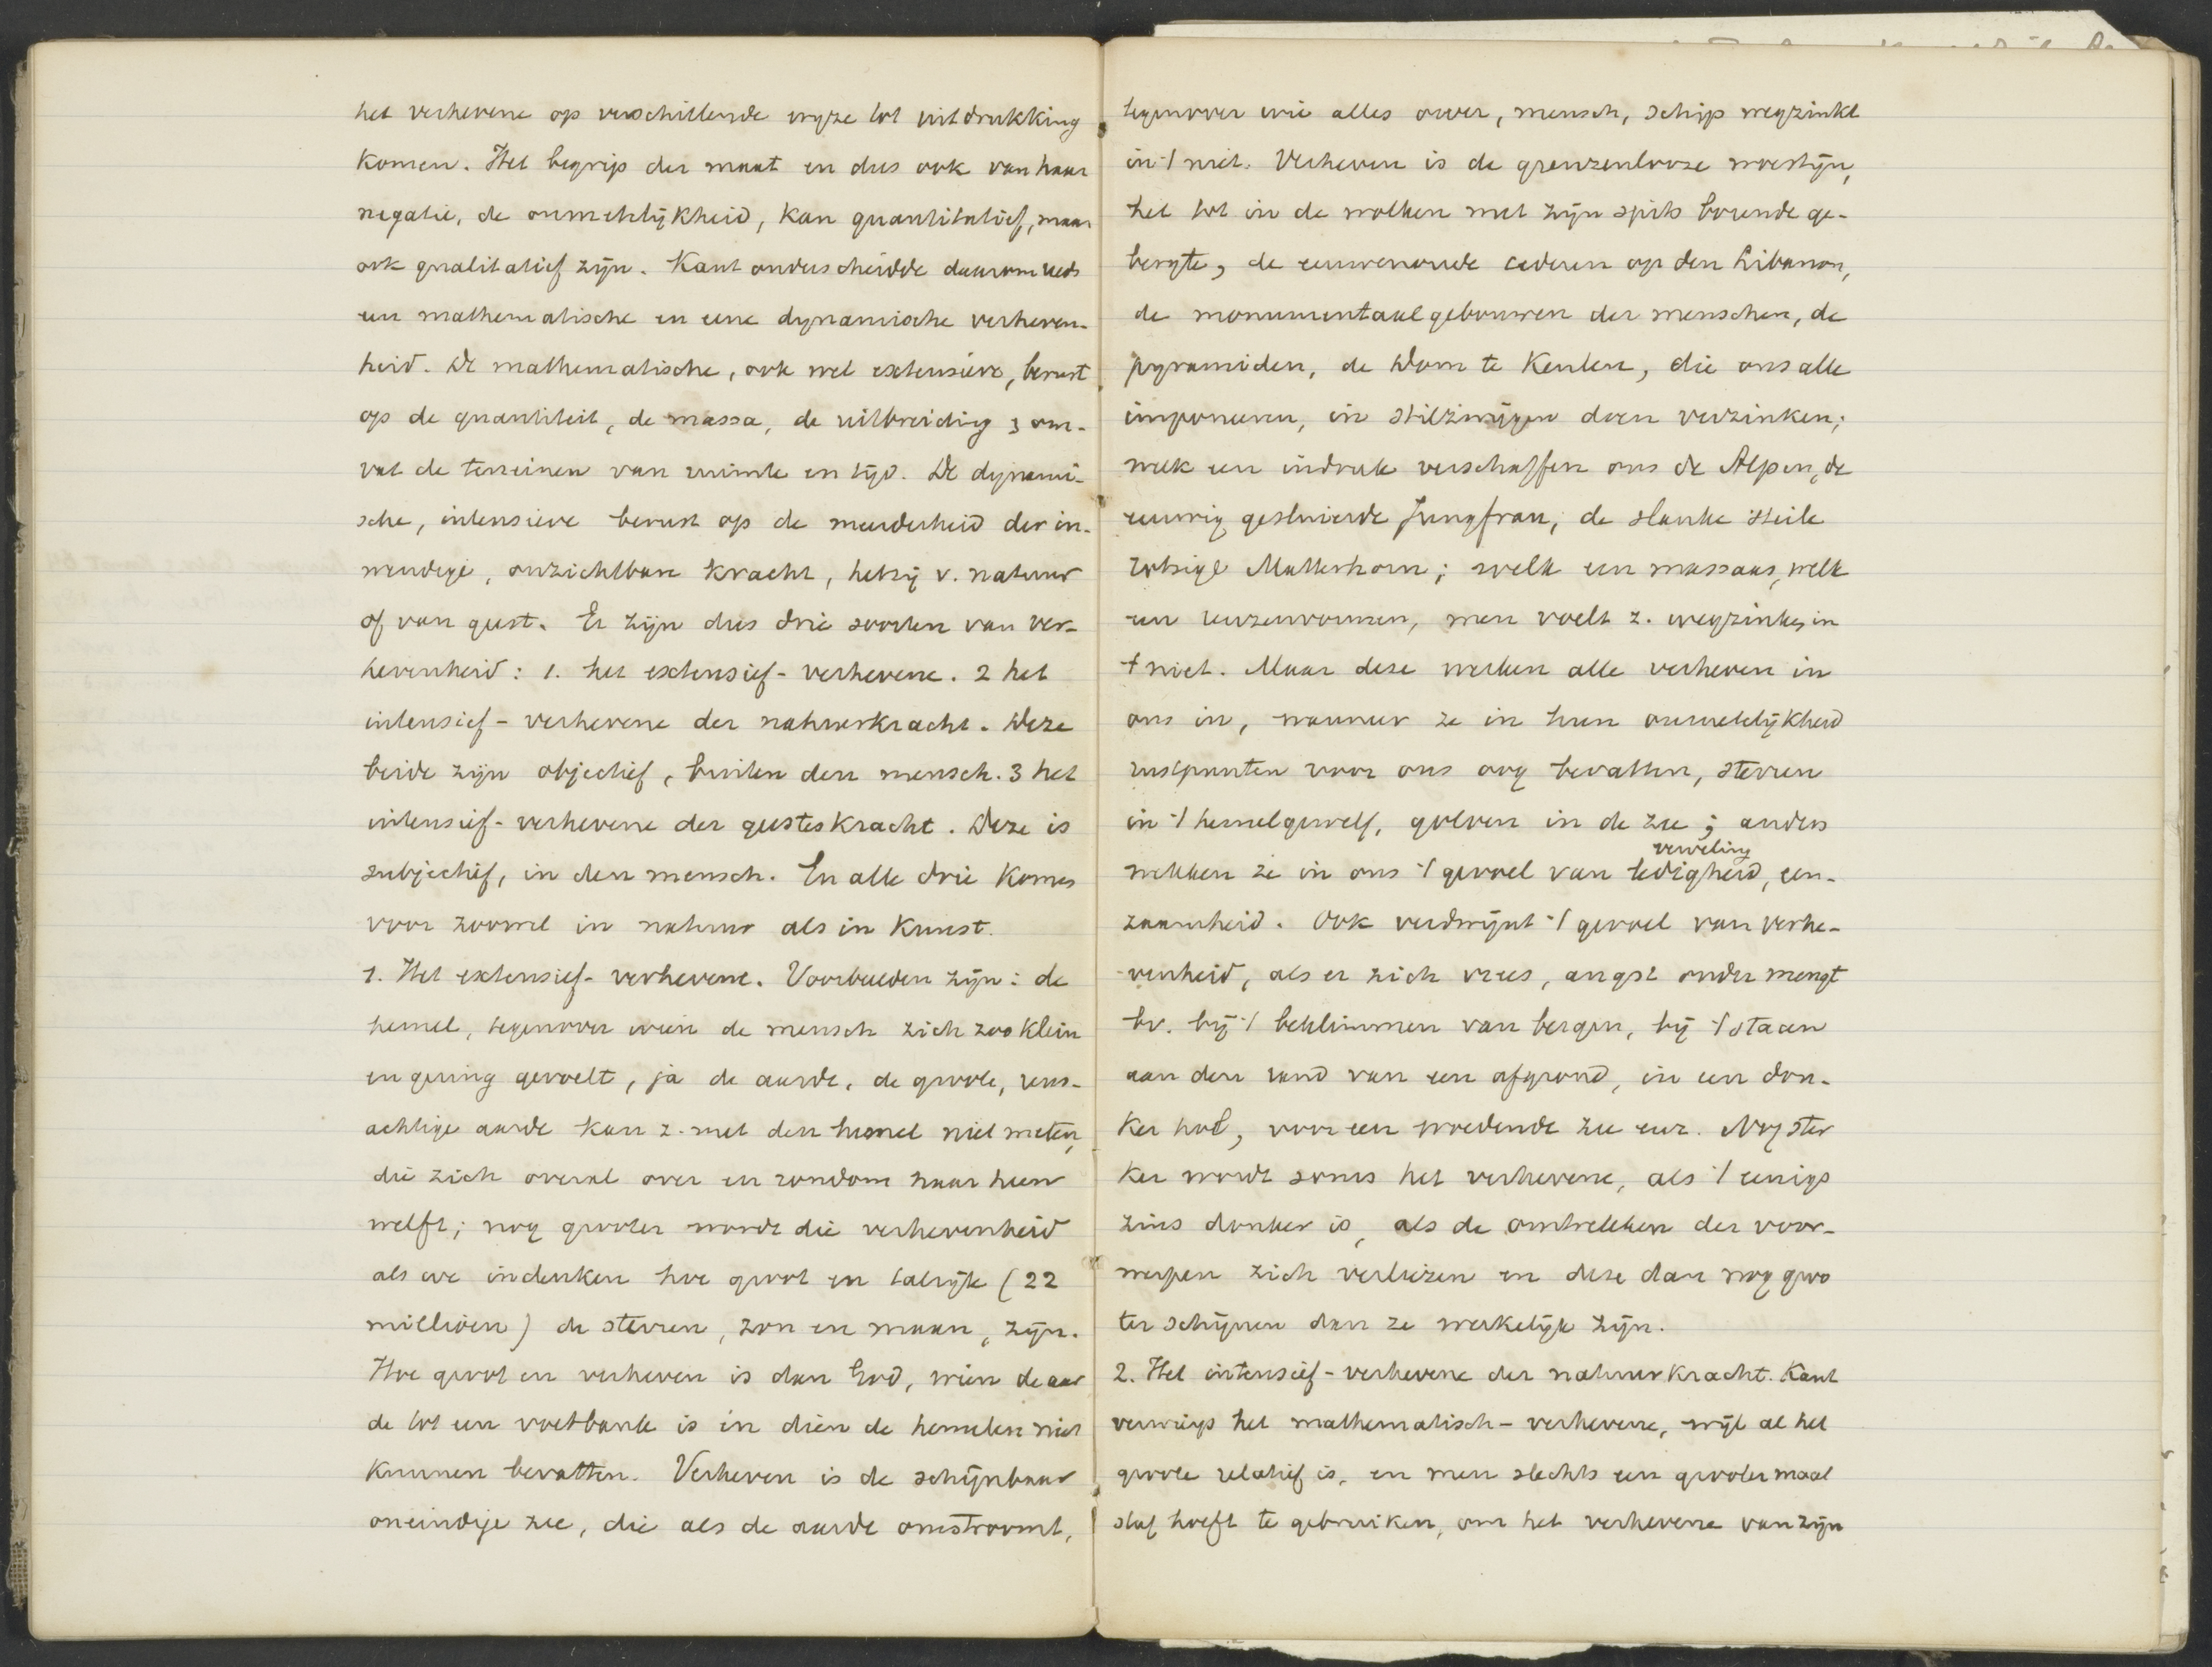 het verhevene op verschillende wyze tot uitdrukking
komen. Het begrip der maat en dus ook van haar
negatie, de onmetelijkheid, kan quantitatief, maar
ook qualitatief zijn. Kant onderscheidde daarom reeds
een mathematische en eene dynamische verheven-
heid. De mathematische, ook wel extensieve, berust
op de quantiteit, de massa, de uitbreiding & om-
vat de terreinen van ruimte en tijd. De dynami-
sche, intensieve berust op de meerderheid der in-
wendige, onzichtbare kracht, hetzij v. natuur
of van geest. Er zijn dus drie soorten van ver-
hevenheid: 1. het extensief-verhevene. 2 het
intensief-verhevene der natuurkracht. Deze
beide zijn objectief, buiten den mensch. 3 het
intensief-verhevene der geesteskracht. Deze is
subjectief, in den mensch. En alle drie komen
voor zoowel in natuur als in Kunst.
1. Het extensief-verhevene. Voorbeelden zijn: de
hemel, tegenover wien de mensch zich zoo klein
en gering gevoelt, ja de aarde, de groote, reus-
achtige aarde kan z. met den hemel niet meten,
die zich overal over en rondom haar heen
welft; nog grooter wordt die verhevenheid
als we indenken hoe groot en talrijk (22
millioen) de sterren, zon en maan, zijn.
Hoe groot en verheven is dan God, wien de aar
de tot een voetbank is in dien de hemelen niet
kunnen bevatten. Verheven is de schijnbaar
oneindige zee, die als de aarde omstroomt,
tegenover wie alles oever, mensch, schip wegzinkt
in 't niet. Verheven is de grenzenlooze woestijn,
het tot in de wolken met zijn spits borende ge-
bergte, de eeuwenoude cederen op den Libanon,
de monumentaalgebouwen der menschen, de
pyramiden, de Dom te Keulen, die ons alle
imponeeren, in stilzwijgen doen verzinken;
welk een indruk verschaffen ons de Alpen, de
eeuwig gesluierde Jungfrau, de slanke steile
rotsige Matterhorn; welk een massaas, welk
een reuzenvormen, men voelt z. wegzinken in
't niet. Maar deze werken alle verheven in
ons in, wanneer ze in hun onmetelijkheid
rustpunten voor ons oog bevatten, sterren
in 't hemelgewelf, golven in de zee; anders
verveling
wekken ze in ons 't gevoel van ledigheid, een-
zaamheid. Ook verdwijnt 't gevoel van verhe-
venheid, als er zich vrees, angst onder mengt
bv. bij 't beklimmen van bergen, bij 't staan
aan den rand van een afgrond, in een don-
ker hol, voor een woedende zee enz. Nog ster
ker wordt soms het verhevene, als 't eenigs
zins donker is, als de omtrekken der voor-
werpen zich verliezen en deze dan nog groo
ter schijnen dan ze werkelijk zijn.
2. Het intensief-verhevene der natuurkracht. Kant
verwierp het mathematisch-verhevene, wijl al het
groote relatief is, en men slechts een grooter maat
staf hoeft te gebruiken, om het verhevene van zijn